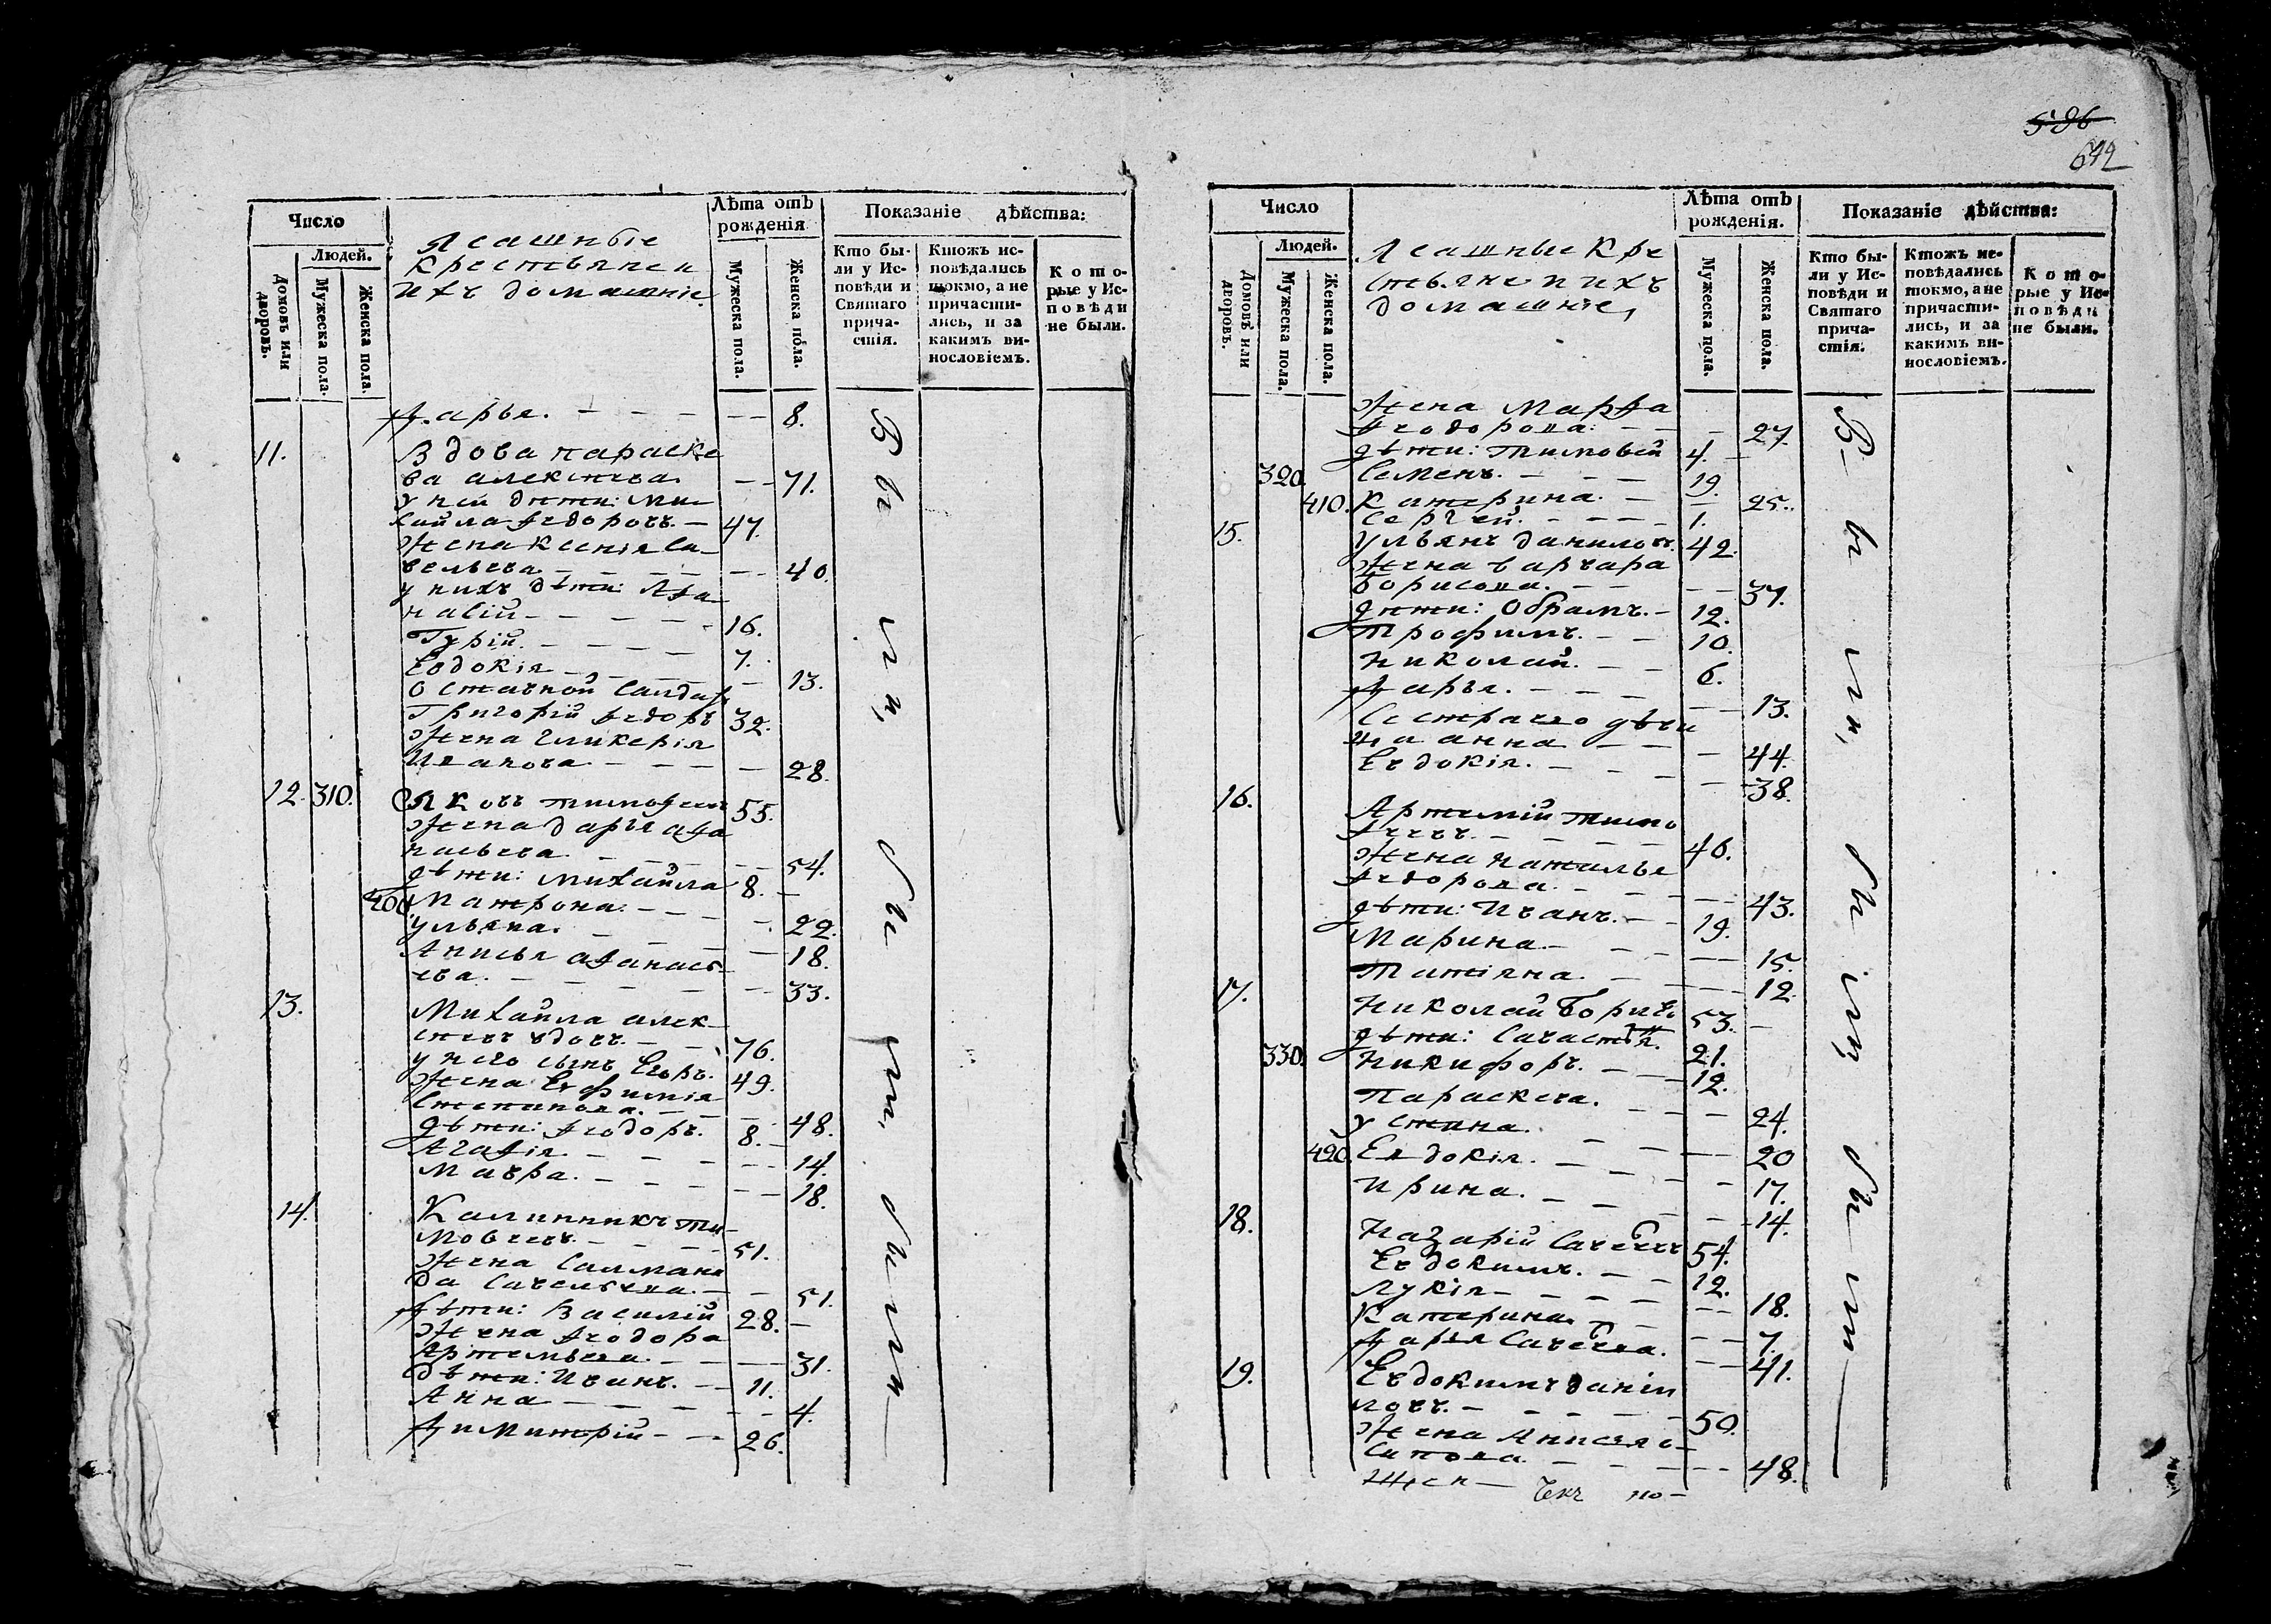 596
642
Число
Людей.
Домовъ или дворовъ.
Мужеска пола.
Женска пола.
Ясашные
Крестьяне и
ихъ домашніе
Лѣта отъ рожденія
Мужеска пола.
Женска пола.
Показаніе дѣйства:
Кто были у Исповѣди и Святаго причастія.
Ктожъ исповѣдались токмо, а не причастились, и за какимъ винословіемъ.
Которые у Исповѣди не были.
Дарья. 8.
11. Вдова Параске
ва Алексѣева 71.
У ней дѣти: Ми
хайла Ѳедоровъ. 47.
Жена Ксенія Са
вельева 40.
у нихъ дѣти: Аѳа
насій 16.
Гурій. 7.
Евдокія 13.
Григорій Ѳедоръ 32.
Жена Гликерія
Иванова 28.
12. 310. Яковъ Тимоѳеевъ 55.
Жена Дарья Аѳа
насьева 54.
дѣти: Михайла 8.
400. Матрона. 22.
Ульяна. 18.
Анисья Аѳанась
ева. 33.
13. Михайла Алек
сѣевъ вдовъ. 76.
у него сынъ Егоръ. 49.
Жена Евфимія
Степанова. 48.
дѣти: Ѳеодоръ. 8.
Агаѳія. 14.
Мавра. 18.
14. Калинникъ Ти
мовеевъ. 51.
Жена Саломани
да Савельева. 51.
дѣти: Василій 28.
Жена Ѳеодора
Артемьева. 31.
дѣти: Иванъ. 11.
Анна 4.
Димитрій 26.
Были, были, были
Число
Людей.
Домовъ или дворовъ.
Мужеска пола.
Женска пола.
Ясашные Кре
стьяне и ихъ
домашніе,
Лѣта отъ рожденія.
Мужеска пола.
Женска пола.
Показаніе дѣйства:
Кто были у Исповѣди и Святаго причастія.
Ктожъ исповѣдались токмо, а не причастились, и за какимъ винословіемъ.
Которые у Исповѣди не были.
Жена Марѳа
Ѳеодорова. 27.
дѣти: Тимовей 4.
320. Семенъ. 19.
410. Катерина. 25.
Сергей. 1.
15. Ульянъ Даниловъ. 42.
Жена Варвара
Борисова. 37.
дѣти: Обрамъ. 12.
Трофимъ. 10.
Николай. 6.
Дарья. 13.
Сестра его дѣви
ца Анна 44.
Евдокія. 38.
16. Артемій Тимо
ѳеевъ. 46.
Жена Наталья
Ѳедорова. 43.
дѣти: Иванъ. 19.
Марина. 15.
Татіяна. 12.
17. Николай Борисо 53.
дѣти: Савастѣй. 21.
330. Никифоръ. 12.
Параскева. 24.
Устина. 20
420. Евдокія. 17.
Ирина. 14.
18. Назарій Савеевъ 54.
Евдокимъ. 12.
Лукія 18.
Катерина. 7.
Дарья Савеева. 41.
19. Евдокимъ Дани
ловъ. 50.
Жена Анисья О
сипова 48.
Были, были, были